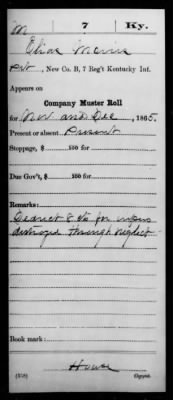 M 7 Ky.
Elias Morris
Pvt, New Co. B, 7 Reg't Kentucky Inf.
Appears on
Company Muster Roll
for Nov and Dec, 1865.
Present or absent Present
Stoppage, $ 100 for
Due Gov't, $ 100 for
Remarks:
Deduct 8 cts for
destroyed through neglect
Book mark:
Howse
(358) Copyist.